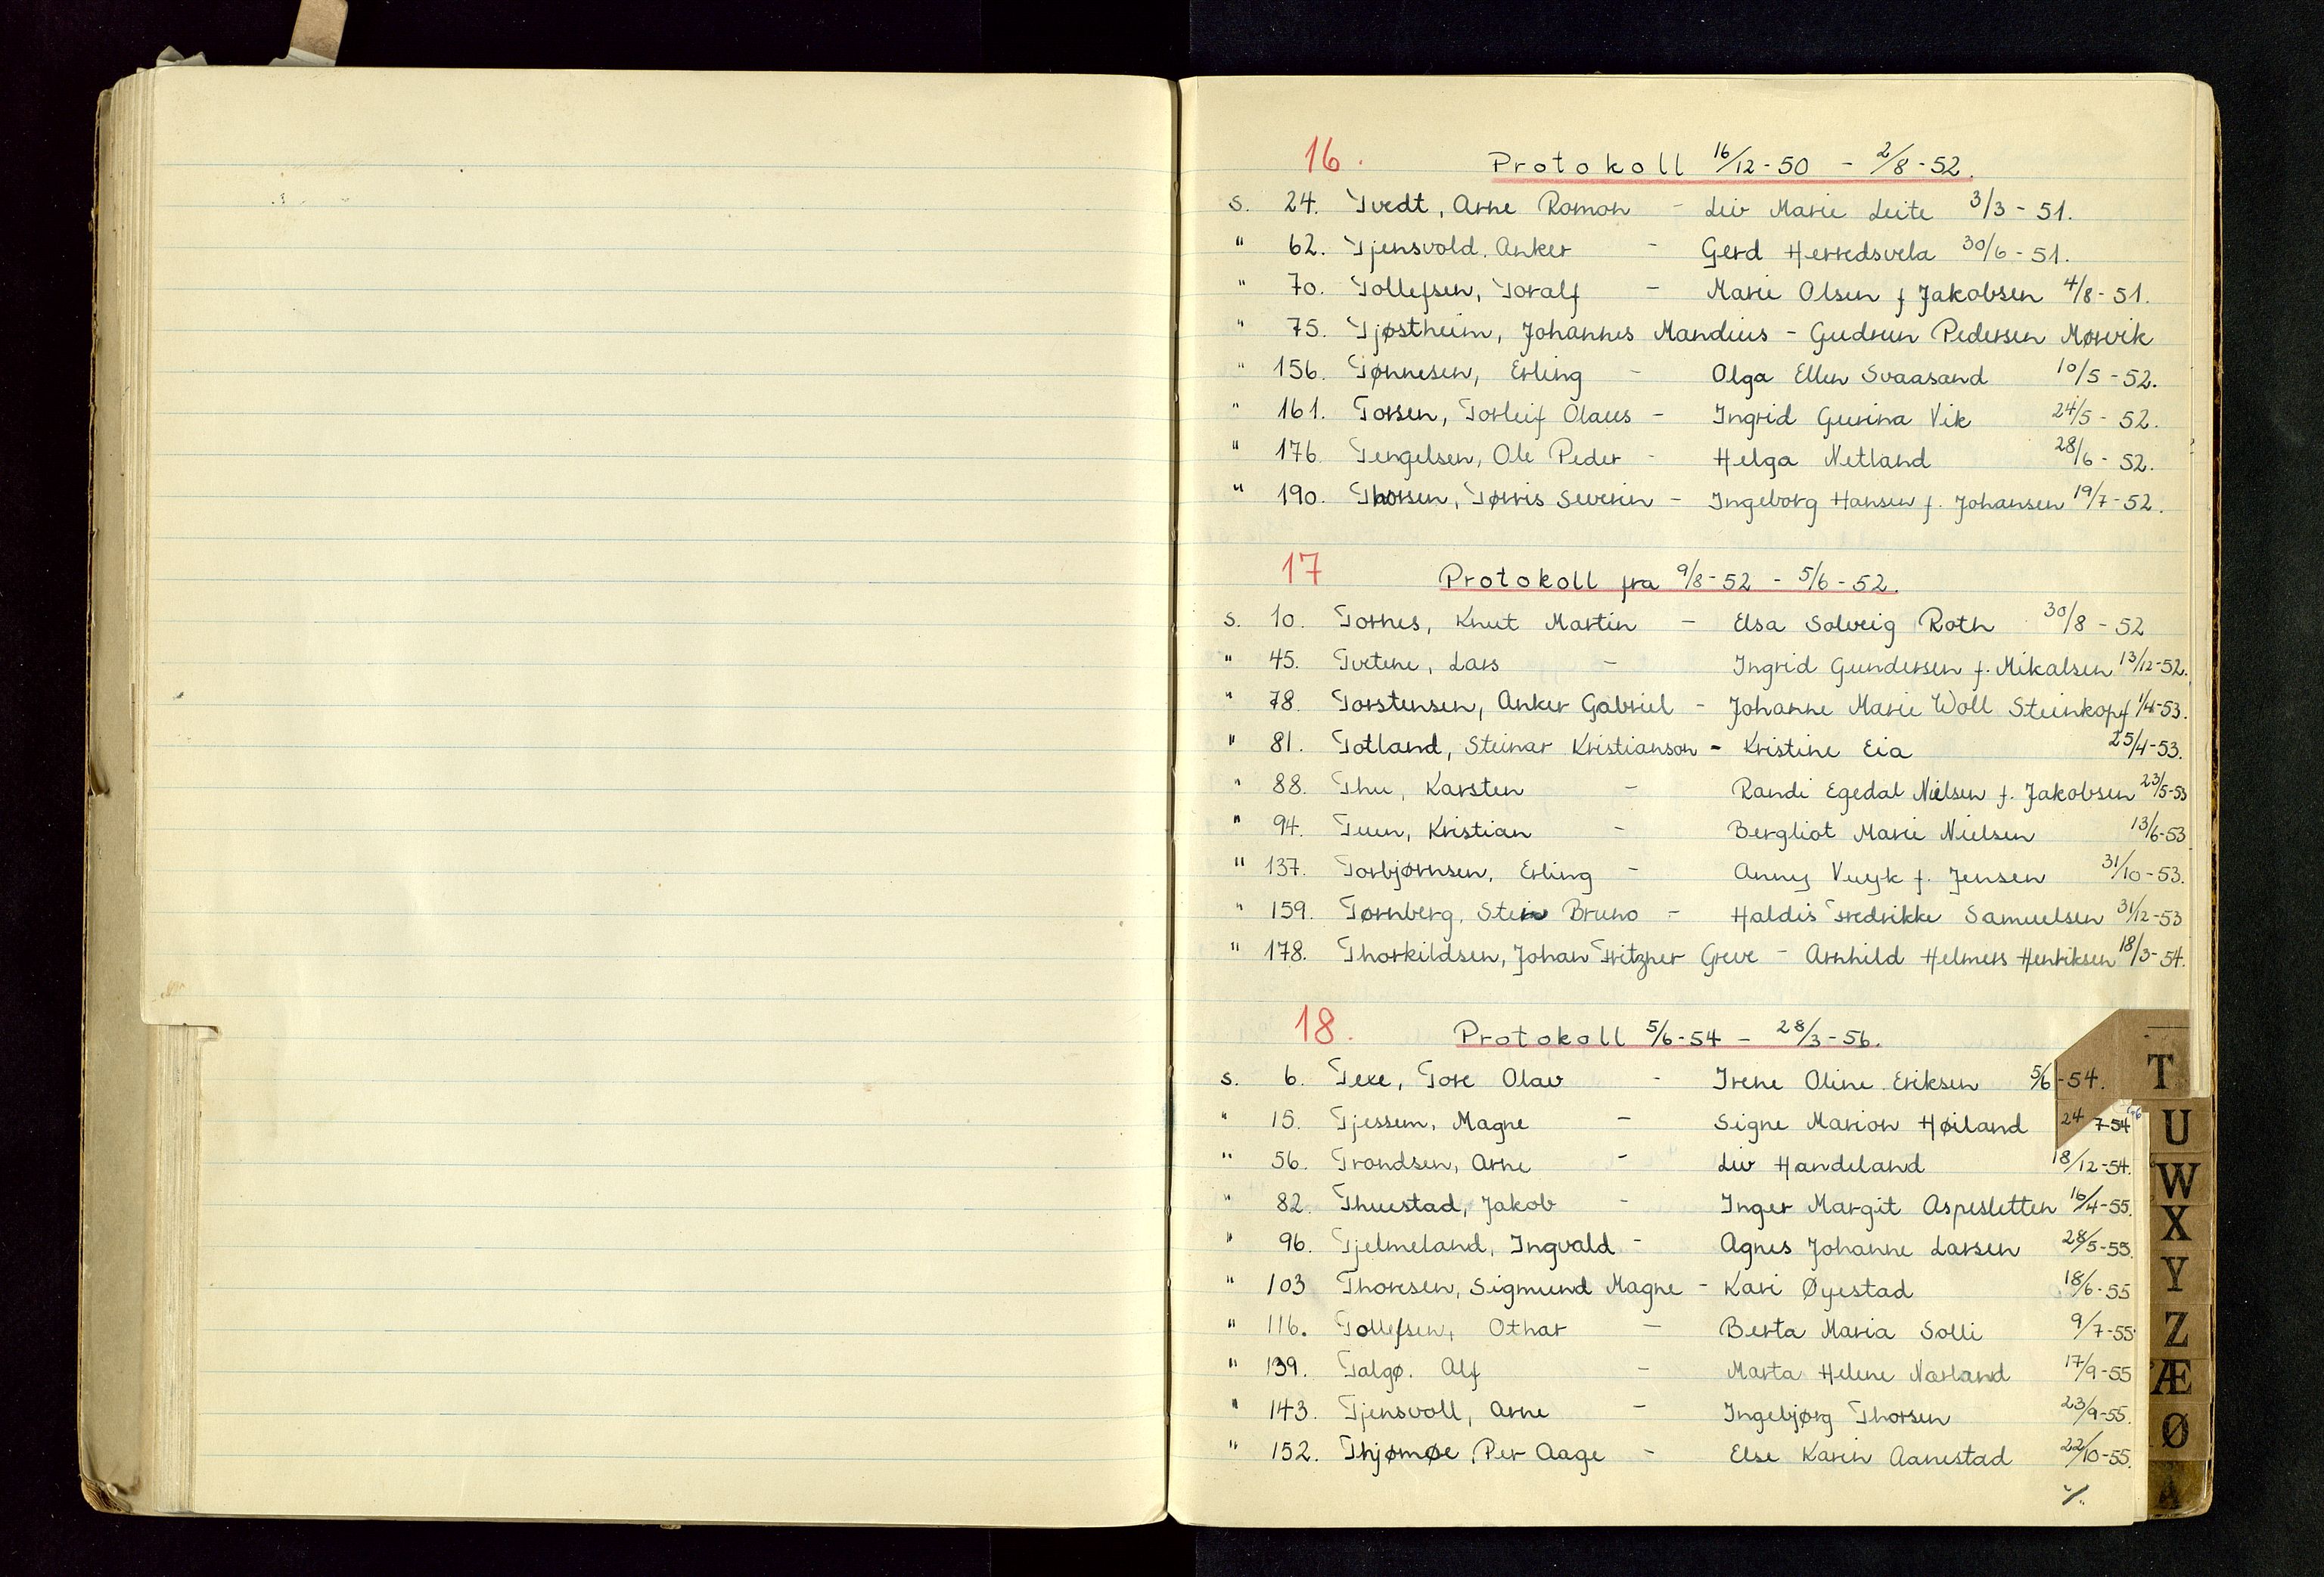 16. Protokoll 16/12-50 - 2/8-52.
s. 24. Tvedt, Arne Romon - Liv Marie Leite 3/3-51.
" 62. Tjensvold, Anker - Gerd Herredsvela 30/6-51.
" 70. Tollefsen, Toralf - Marie Olsen f Jakobsen 4/8-51.
" 75. Tjøstheim, Johannes Mandius - Gudrun Pedersen Mørvik
" 156. Tønnesen, Erling - Olga Ellen Svaasand 10/5-52.
" 161. Torsen, Torleif Olaus - Ingrid Gurina Vik 24/5-52.
" 176. Tengelsen, Ole Peder - Helga Netland 28/6-52.
" 190. Thorsen, Tørris Severin - Ingeborg Hansen f. Johansen 19/7-52.
17 Protokoll fra 9/8-52 - 5/6-52.
s. 10. Tornes, Knut Martin - Elsa Solveig Roth 30/8-52
" 45. Tvetene, Lars - Ingrid Gundersen f. Mikalsen 13/12-52.
" 78. Torstensen, Anker Gabriel - Johanne Marie Woll Steinkopf 1/4-53.
" 81. Totland, Steinar Kristianson - Kristine Eia 25/4-53.
" 88. Thu, Karsten - Randi Egedal Nielsen f. Jakobsen 23/5-53
" 94. Tuen, Kristian - Bergliot Marie Nielsen 13/6-53
" 137. Torbjørnsen, Erling - Anny Vuyk f. Jensen 31/10-53.
" 159. Tørnberg, Stein Bruno - Haldis Fredrikke Samuelsen 31/12-53
" 178. Thorkildsen, Johan Fritzner Greve - Arnhild Helmers Henriksen 18/3-54.
18. Protokoll 5/6-54 - 28/3-56.
s. 6. Texe, Tore Olav - Irene Oline Eriksen 5/6-54.
" 15. Tjessem, Magne - Signe Marion Høiland 24 7-54
" 56. Trondsen, Arne - Liv Handeland 18/12-54.
" 82. Thuestad, Jakob - Inger Margit Aspesletten 16/4-55.
" 96. Tjelmeland, Ingvald - Agnes Johanne Larsen 28/5-55.
" 103 Thoresen, Sigmund Magne - Kari Øyestad 18/6-55
" 116. Tollefsen, Othar - Berta Maria Solli 9/7-55
" 139. Talgø. Alf - Marta Helene Nærland 17/9-55
" 143. Tjensvoll, Arne - Ingebjørg Thorsen 23/9-55.
" 152. Thjømøe, Per Aage - Else Karin Aanestad 22/10-55.
T
U
W
X
Y
Z
Æ
Ø
Å